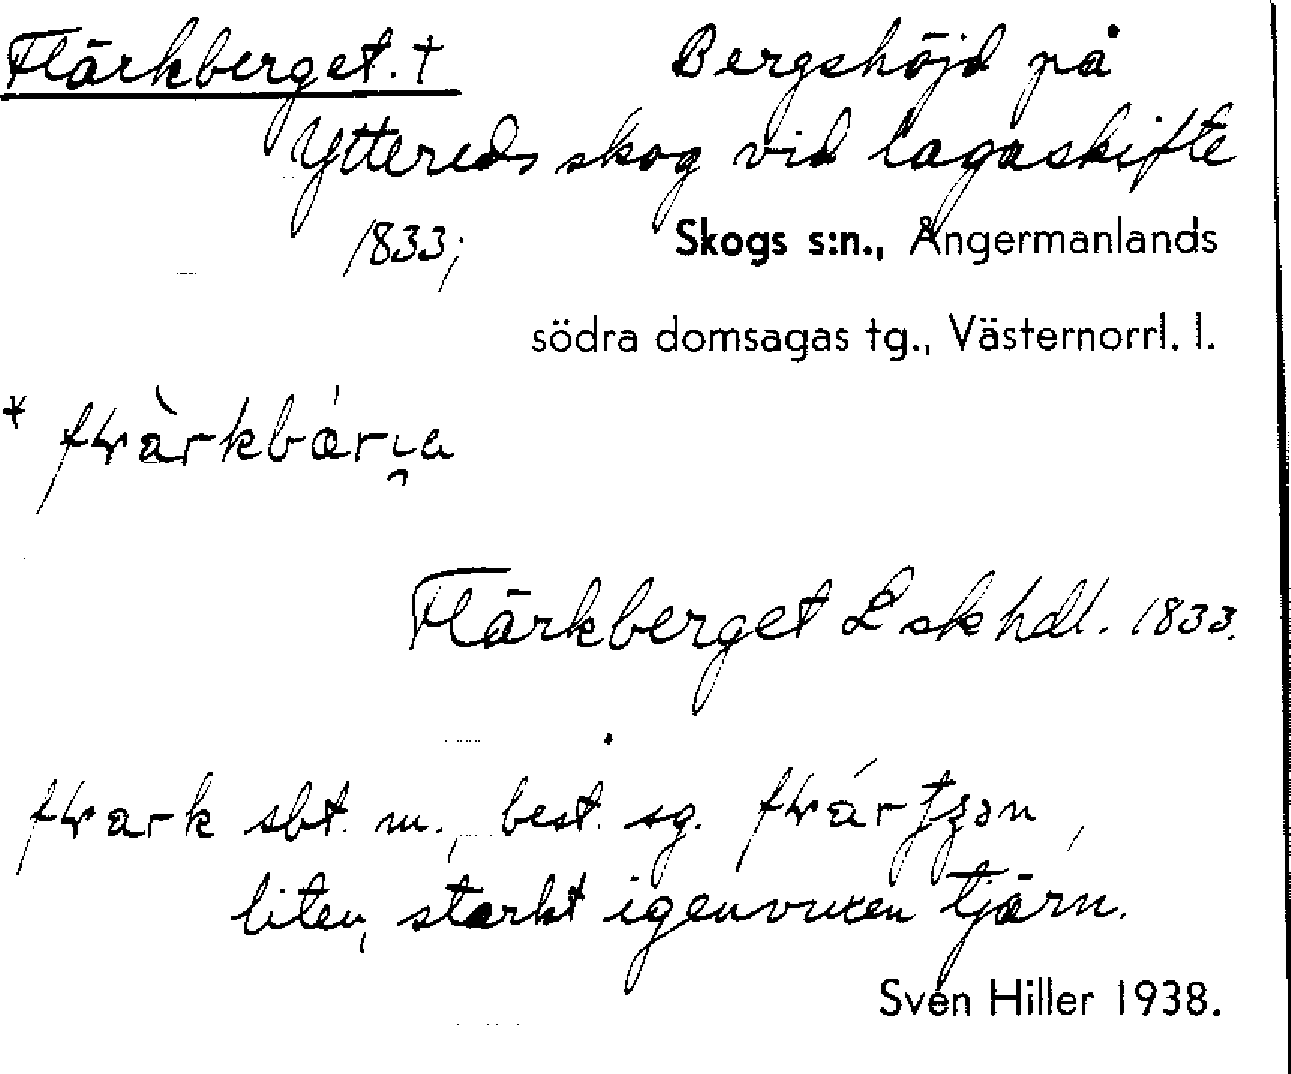 Flärkberget. † Bergshöjd på
Yttereds skog vid lagaskifte
1833; Skogs s:n., Ångermanlands
södra domsagas tg., Västernorrl. l.
Flärkberget L sk hdl. 1833.
sbt. m., best. sg.
liten, starkt igenvuxen tjärn.
Sven Hiller 1938.